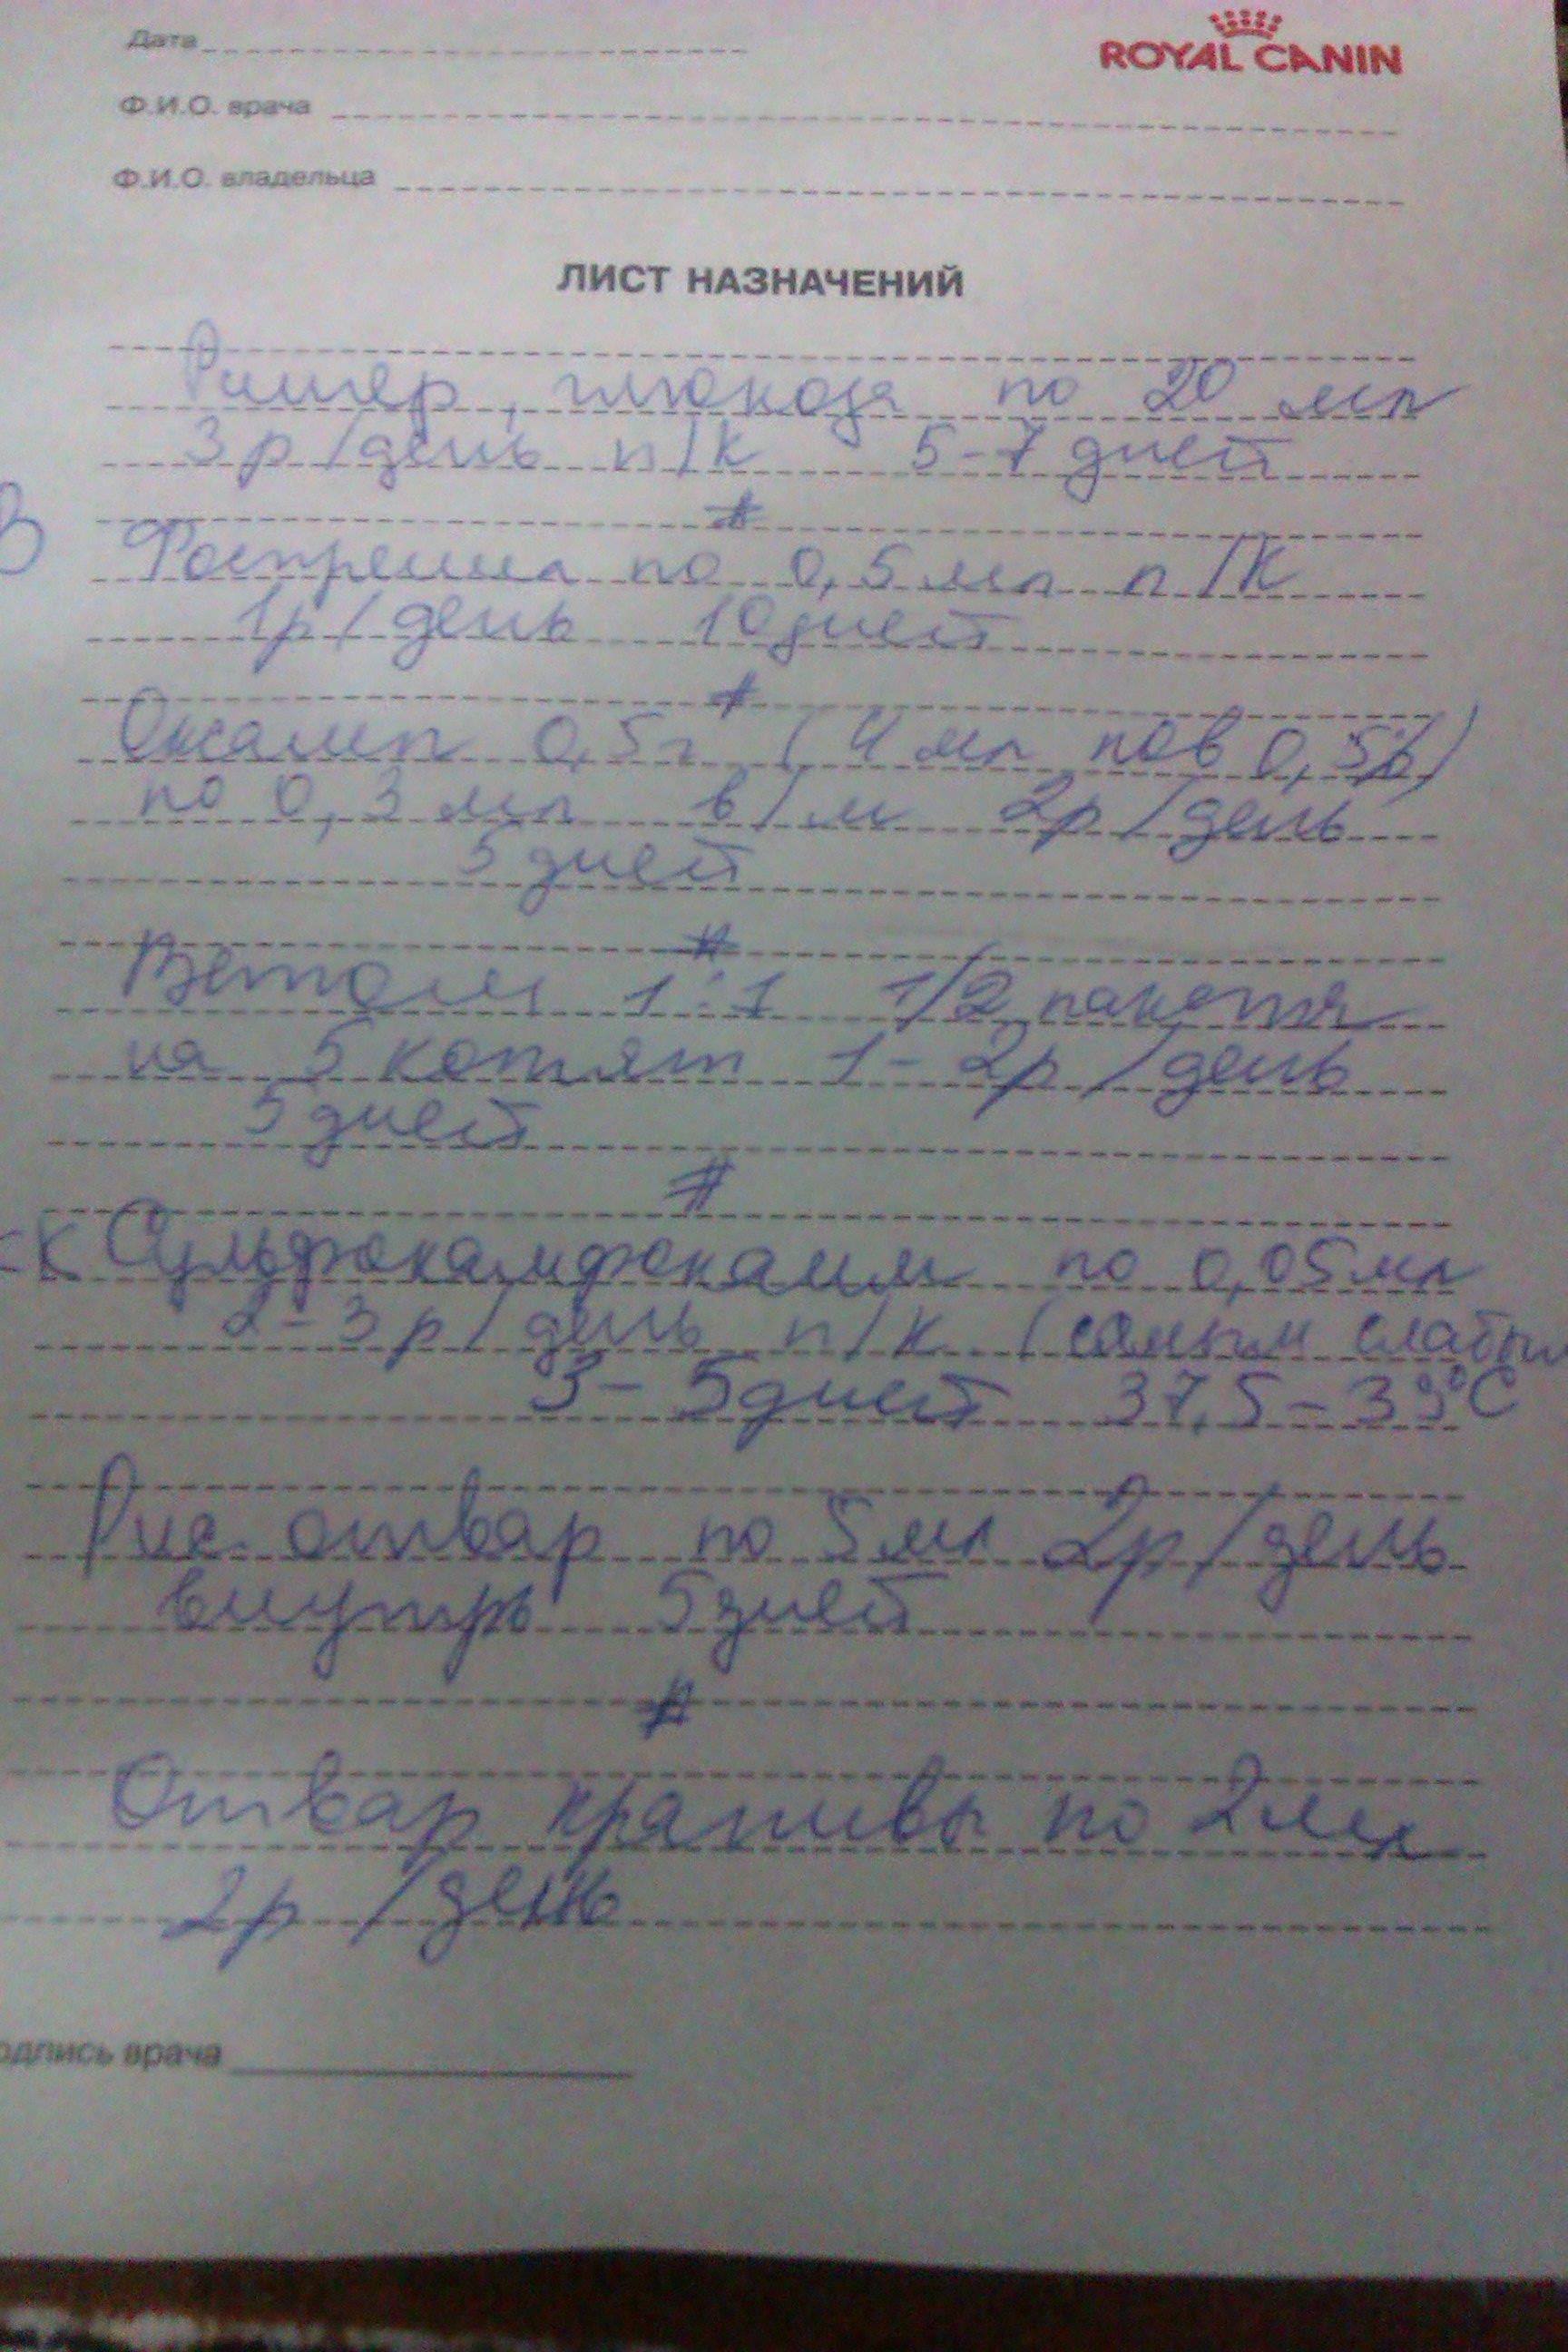 Дата
ROYAL CANIN
Ф.И.О. врача
Ф.И.О. владельца
ЛИСТ НАЗНАЧЕНИЙ
Рингер, глюкоза по 20 мл
3р/день п/к 5-7 дней
#
В Фоспренил по 0,5 мл п/к
1р/день 10 дней
#
Оксамп 0,5г (4 мл нов 0,5%)
по 0,3 мл в/м 2р/день
5 дней
#
Ветом 1:1 1/2 пакета
на 5 котят 1-2р/день
5 дней
#
К Сульфокамфокаин по 0,05 мл
2-3р/день п/к (самым слабым
3-5 дней 37,5-39°С
Рис. отвар по 5 мл 2р/день
внутрь 5 дней
#
Отвар крапивы по 2 мл
2р/день
одпись врача